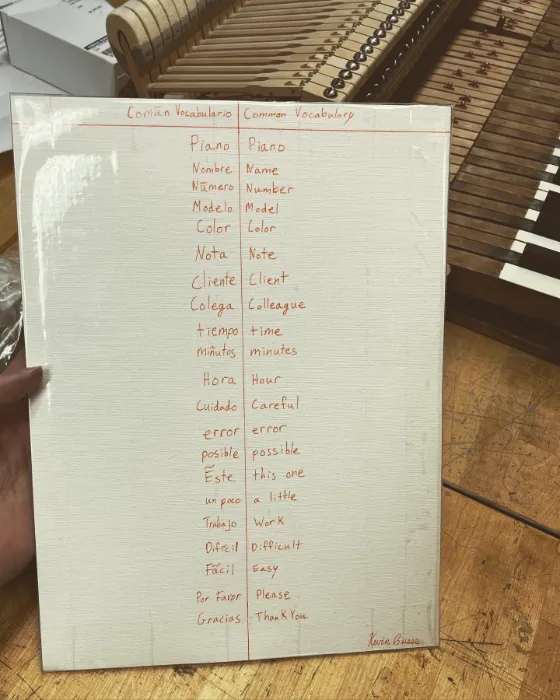 Comũn Vocabulario Common Vocabulary
Piano Piano
Nombre Name
Nũmero Number
Modelo Model
Color Color
Nota Note
Cliente Client
Colega Colleague
tiempo time
miñutos minutes
Hora Hour
Cuidado Careful
error error
posible possible
Ẽste this one
un poco a little
Trabajo Work
Difĩcil Difficult
Fãcil Easy
Por Favor Please
Gracias Thank You
Kevin